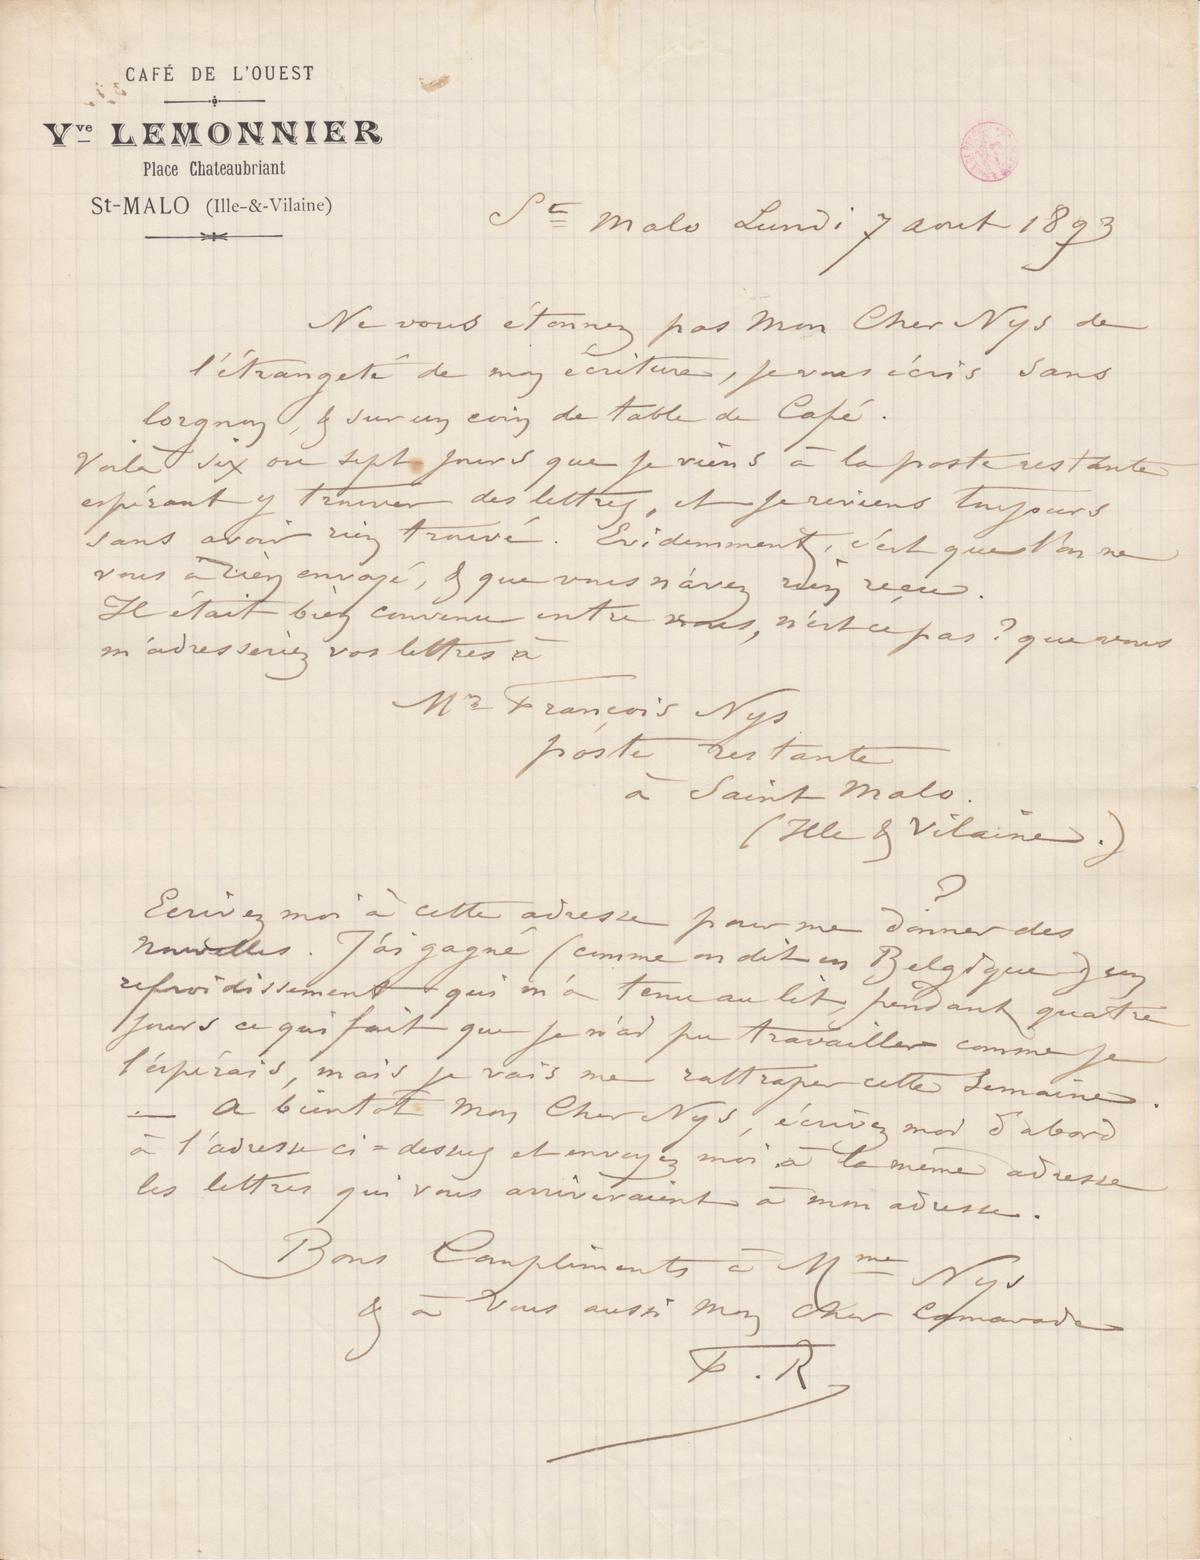 CAFÉ DE L'OUEST
Vve LEMONNIER
Place Chateaubriant
St-MALO (Ille-&-Vilaine)
St Malo Lundi 7 aout 1893
Ne vous étonnez pas Mon Cher Nys de
l'étrangeté de mon écriture, je vous écris sans
lorgnon, & sur un coin de table de Café.
Voilà six ou sept jours que je viens à la poste restante
espérant y trouver des lettres, et je reviens toujours
sans avoir rien trouvé. Evidemment, c'est que l'on ne
vous à rien envoyé, & que vous n'avez rien reçu.
Il était bien convenu entre nous, n'est ce pas ? que vous
m'adresseriez vos lettres à
Mr François Nys
poste restante
à Saint Malo.
(Ille & Vilaine.)
?
Ecrivez moi à cette adresse pour me donner des
nouvelles. J'ai gagné (comme on dit en Belgique) un
refroidissement qui m'a tenu au lit, pendant quatre
jours ce qui fait que je n'ai pu travailler comme je
l'espérais, mais je vais me rattraper cette Semaine.
— A bientot Mon Cher Nys, écrivez moi d'abord
à l'adresse ci=dessus et envoyez moi à la même adresse
les lettres qui vous arriveraient à mon adresse.
Bons Compliments à Mme Nys
& à vous aussi Mon Cher Camarade
F. R